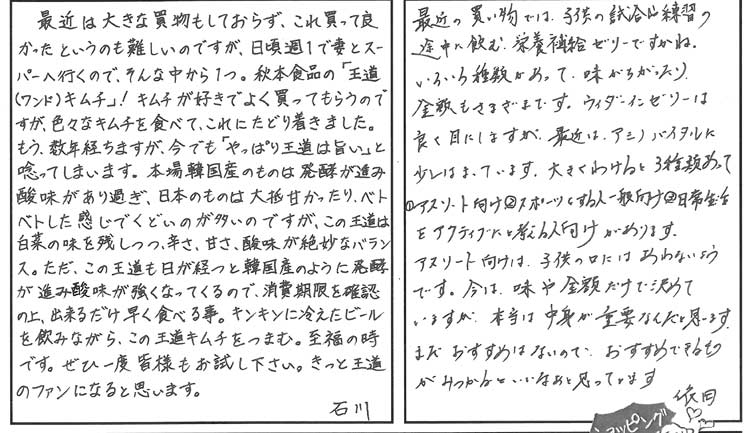 最近は大きな買物もしておらず、これ買って良
かったというのも難しいのですが、日頃週1で妻とスー
パーへ行くので、そんな中から1つ。秋本食品の「王道
(ワンド)キムチ」! キムチが好きでよく買ってもらうので
すが、色々なキムチを食べて、これにたどり着きました。
もう、数年経ちますが、今でも「やっぱり王道は旨い」と
唸ってしまいます。本場韓国産のものは発酵が進み
酸味があり過ぎ、日本のものは大抵甘かったり、ベト
ベトした感じでくどいのが多いのですが、この王道は
白菜の味を残しつつ、辛さ、甘さ、酸味が絶妙なバラン
ス。ただ、この王道も日が経つと韓国産のように発酵
が進み酸味が強くなってくるので、消費期限を確認
の上、出来るだけ早く食べる事。キンキンに冷えたビール
を飲みながら、この王道キムチをつまむ。至福の時
です。ぜひ一度皆様もお試し下さい。きっと王道
のファンになると思います。
石川
最近の買い物では、子供の試合や練習の
途中に飲む、栄養補給ゼリーですかね。
いろいろ種類があって、味がちがったり、
金額もさまざまです。ウィダーインゼリーは
良く目にしますが、最近は、アミノバイタルに
少しはまっています。大きくわけると3種類あって
①アスリート向け②スポーツをする人一般向け③日常生活
をアクティブにと考える人向けがあります。
アスリート向けは、子供の口にはあわないよう
です。今は、味や金額だけで決めて
いますが、本当は中身が重要なんだと思います。
まだおすすめはないので、おすすめできるもの
がみつかるといいなぁと思っています
依田
ショッピング